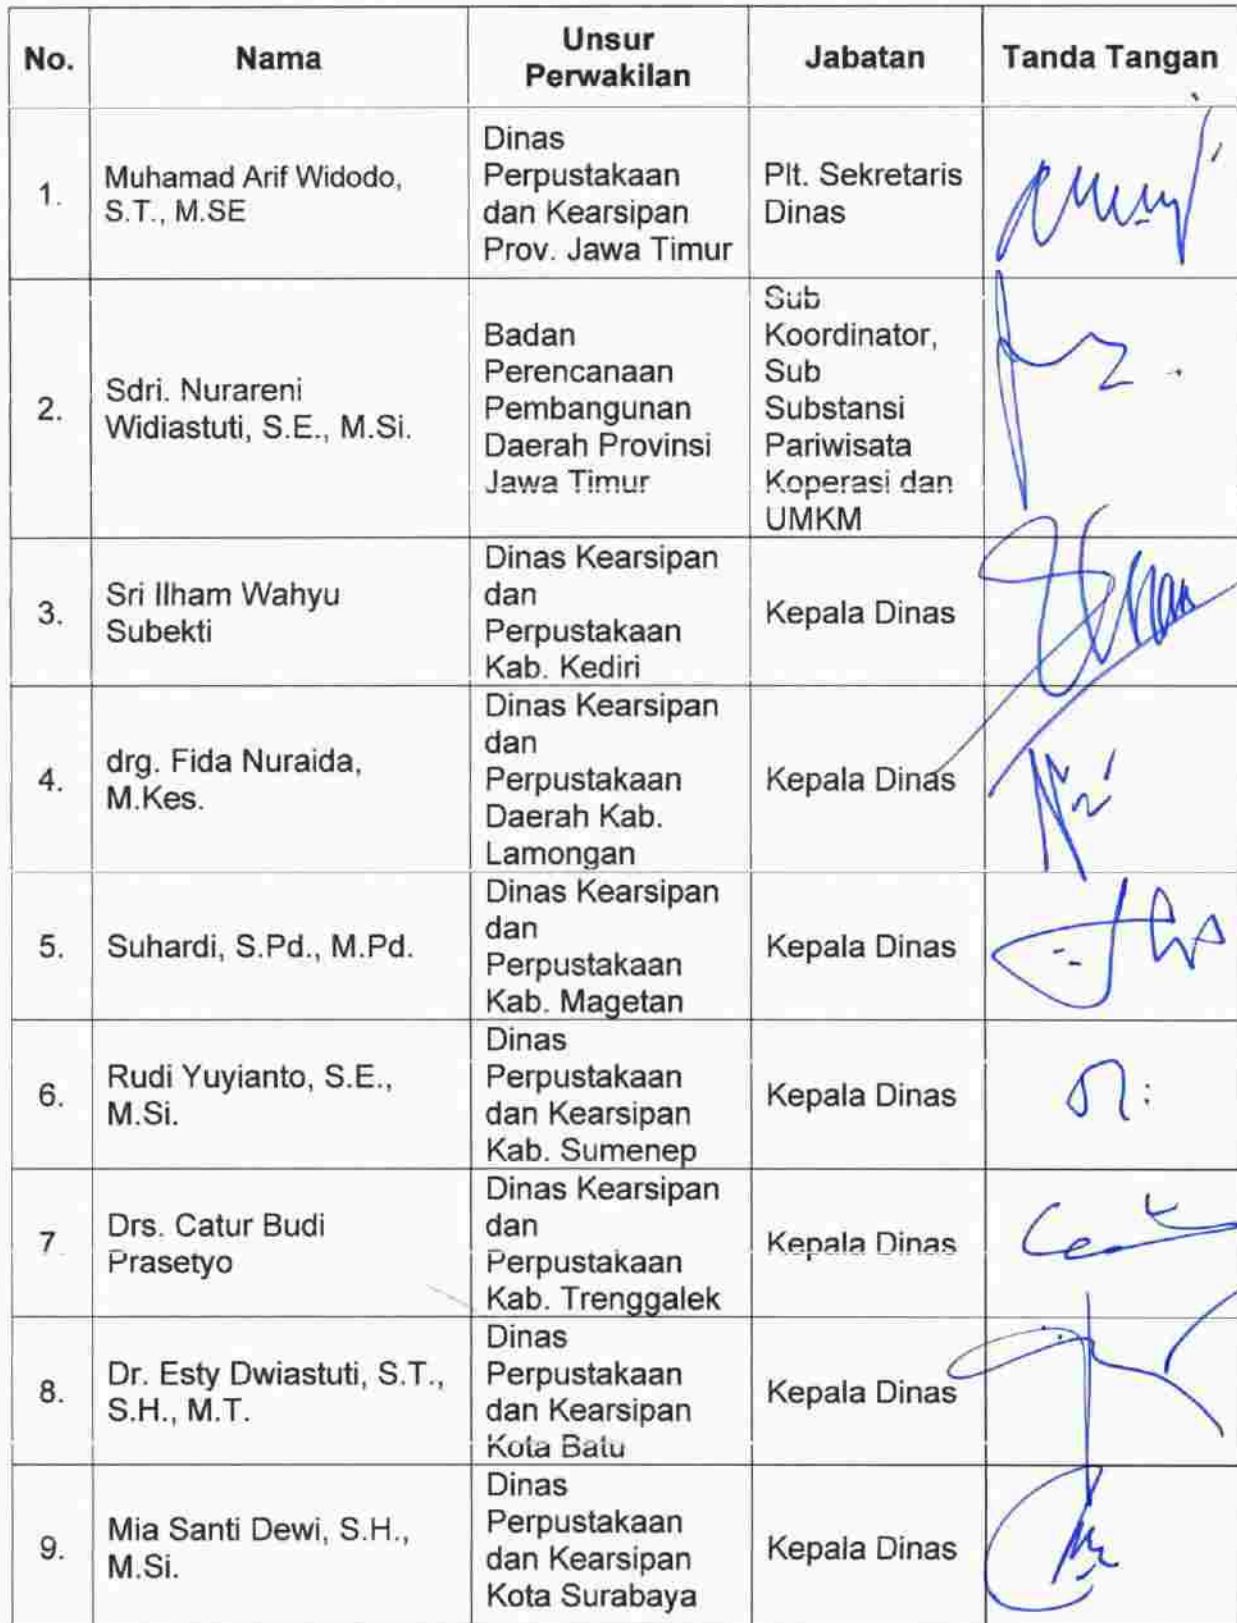 No.
Nama
Unsur
Perwakilan
Jabatan
Tanda Tangan
1.
Muhamad Arif Widodo,
S.T., M.SE
Dinas
Perpustakaan
dan Kearsipan
Prov. Jawa Timur
Plt. Sekretaris
Dinas
2.
Sdri. Nurareni
Widiastuti, S.E., M.Si.
Badan
Perencanaan
Pembangunan
Daerah Provinsi
Jawa Timur
Sub
Koordinator,
Sub
Substansi
Pariwisata
Koperasi dan
UMKM
3.
Sri Ilham Wahyu
Subekti
Dinas Kearsipan
dan
Perpustakaan
Kab. Kediri
Kepala Dinas
4.
drg. Fida Nuraida,
M.Kes.
Dinas Kearsipan
dan
Perpustakaan
Daerah Kab.
Lamongan
Kepala Dinas
5.
Suhardi, S.Pd., M.Pd.
Dinas Kearsipan
dan
Perpustakaan
Kab. Magetan
Kepala Dinas
6.
Rudi Yuyianto, S.E.,
M.Si.
Dinas
Perpustakaan
dan Kearsipan
Kab. Sumenep
Kepala Dinas
7.
Drs. Catur Budi
Prasetyo
Dinas Kearsipan
dan
Perpustakaan
Kab. Trenggalek
Kepala Dinas
8.
Dr. Esty Dwiastuti, S.T.,
S.H., M.T.
Dinas
Perpustakaan
dan Kearsipan
Kota Batu
Kepala Dinas
9.
Mia Santi Dewi, S.H.,
M.Si.
Dinas
Perpustakaan
dan Kearsipan
Kota Surabaya
Kepala Dinas